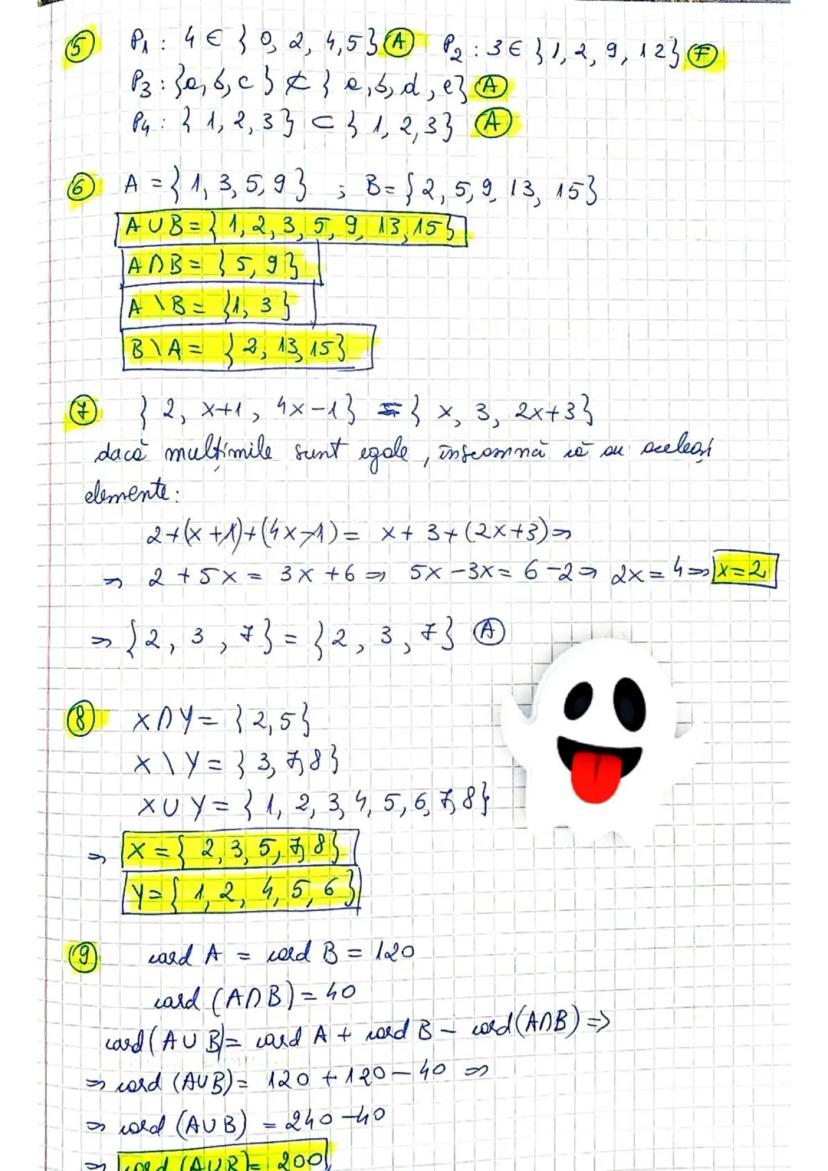 ⑤ P1 : 4 ∈ { 0, 2, 4,5} Ⓐ P2 : 3 ∈ { 1, 2, 9, 12} Ⓕ
P3 : {a, b, c } ⊄ { a, b, d, e} Ⓐ
P4 : { 1, 2, 3 } ⊂ { 1, 2, 3} Ⓐ
⑥ A = { 1, 3, 5, 9 } ; B = { 2, 5, 9, 13, 15}
A ∪ B = { 1, 2, 3, 5, 9, 13, 15}
A ∩ B = { 5, 9 }
A \ B = {1, 3 }
B \ A = { 2, 13, 15}
⑦ { 2, x+1, 4x-1} = { x, 3, 2x+3}
dacă mulțimile sunt egale, înseamnă că au aceleași
elemente:
2+(x+1)+(4x-1) = x + 3 + (2x+3) ⇒
⇒ 2 + 5x = 3x + 6 ⇒ 5x - 3x = 6 - 2 ⇒ 2x = 4 ⇒ x = 2
⇒ { 2, 3, 7 } = { 2, 3, 7 } Ⓐ
⑧ X ∩ Y = { 2, 5 }
X \ Y = { 3, 7, 8 }
X ∪ Y = { 1, 2, 3, 4, 5, 6, 7, 8 }
⇒ X = { 2, 3, 5, 7, 8 }
Y = { 1, 2, 4, 5, 6 }
⑨ card A = card B = 120
card (A∩B) = 40
card (A ∪ B) = card A + card B - card (A∩B) =>
⇒ card (A∪B) = 120 + 120 - 40 ⇒
⇒ card (A∪B) = 240 - 40
⇒ card (A∪B) = 200